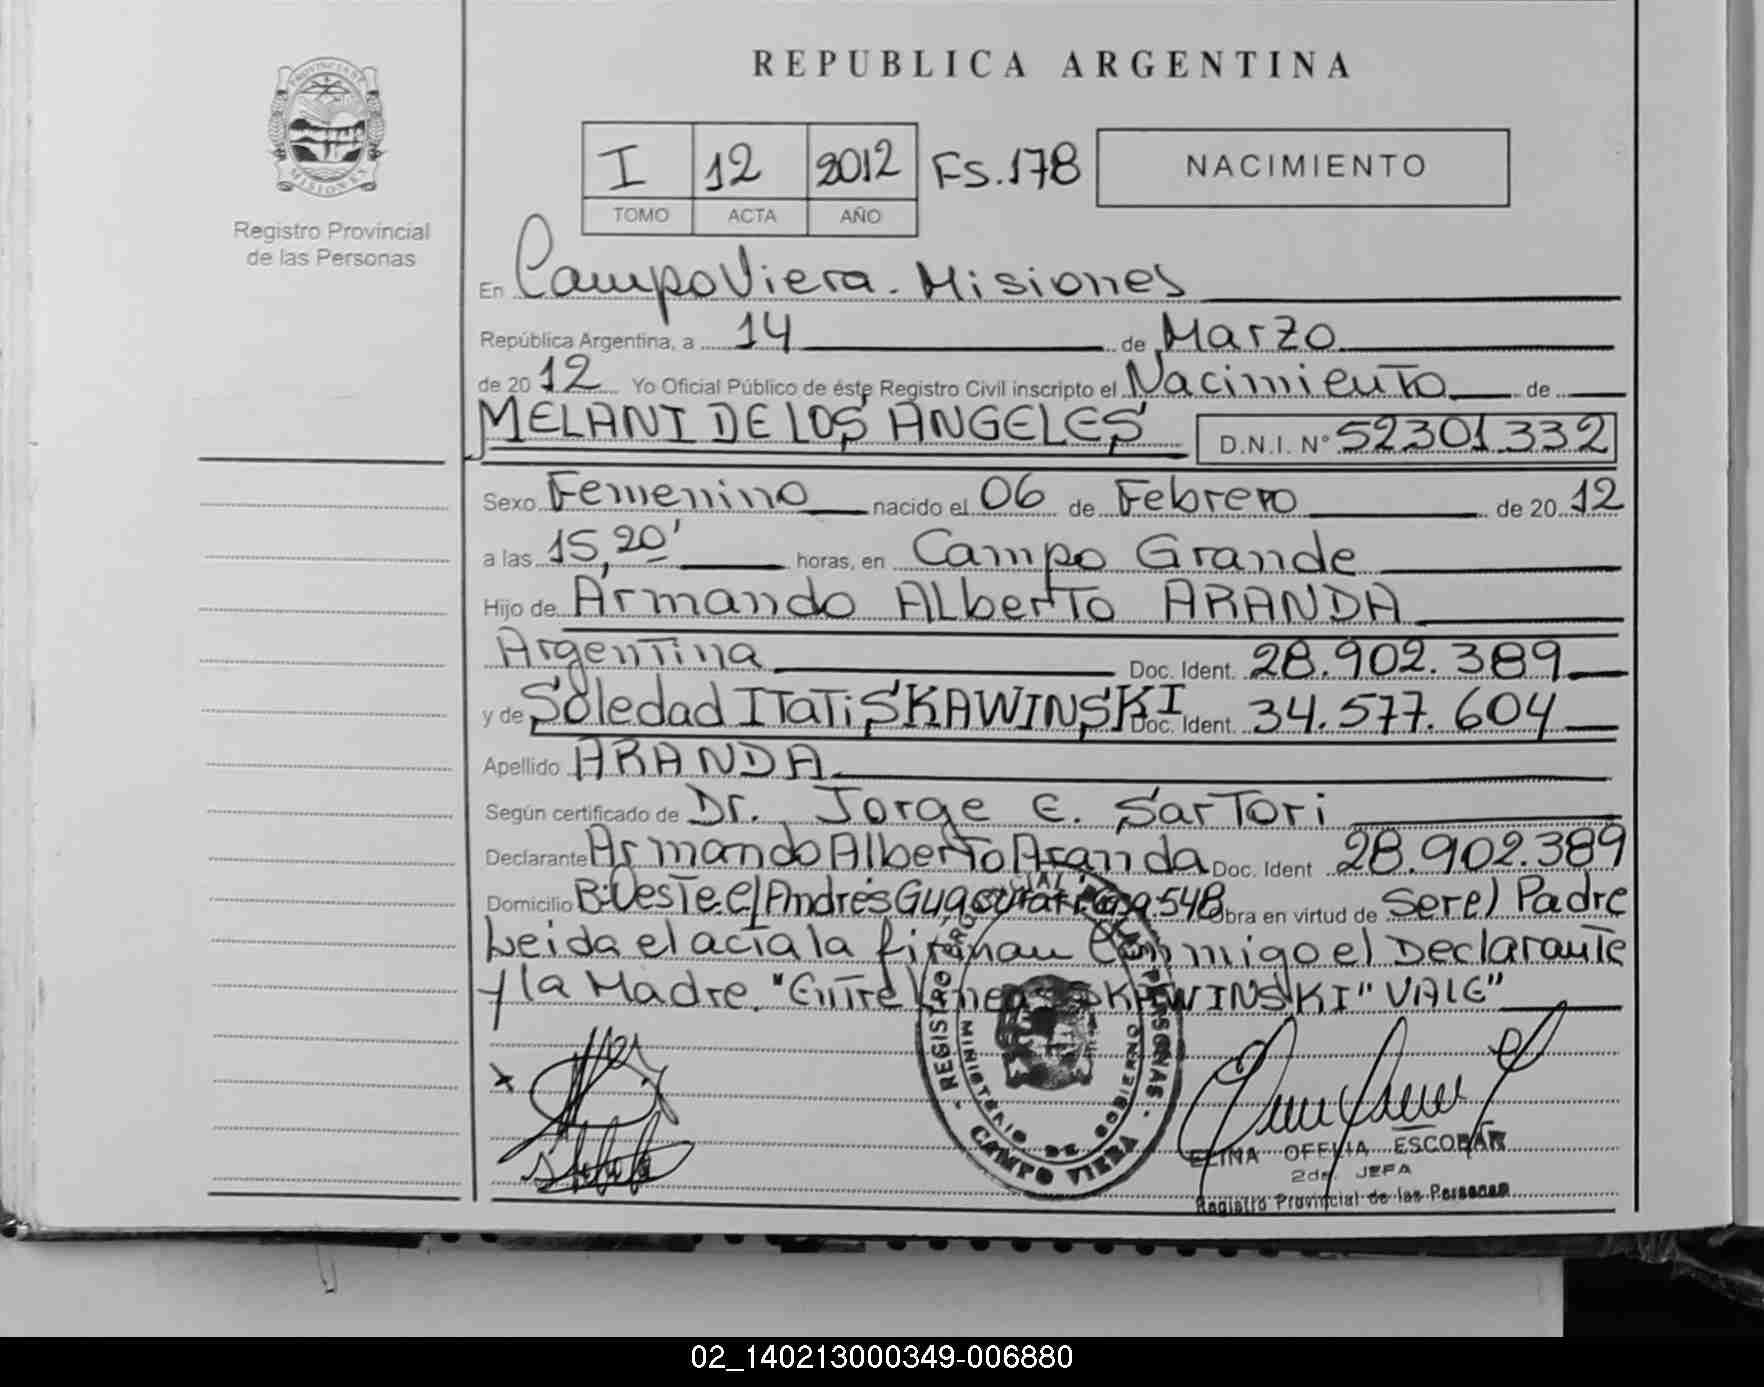 REPUBLICA ARGENTINA
PROVINCIA DE
MISIONES
Registro Provincial
de las Personas
I 12 2012 Fs.178 NACIMIENTO
TOMO ACTA AÑO
En Campo Viera. Misiones
República Argentina, a 14 de Marzo
de 2012 Yo Oficial Público de éste Registro Civil inscripto el Nacimiento de
MELANI DE LOS ANGELES D.N.I. N° 52301332
Sexo Femenino nacido el 06 de Febrero de 2012
a las 15,20' horas, en Campo Grande
Hijo de Armando ALberto ARANDA
Argentina Doc. Ident. 28.902.389
y de Soledad ITaTi SKAWINSKI Doc. Ident. 34.577.604
Apellido ARANDA
Según certificado de Dr. Jorge E. Sartori
Declarante Armando Alberto Aranda Doc. Ident 28.902.389
Domicilio B: Oeste.c/Andrés Guacurarí 548 Obra en virtud de Ser el Padre
Leida el acta la firman Conmigo el Declarante
y la Madre. "Entre Lineas SKAWINSKI" VALE"
REGISTRO PERSONAS
MINISTERIO DE GOBIERNO
CAMPO VIERA
ELINA OFELIA ESCOBAR
2da. JEFA
Registro Provincial de las Personas
02_140213000349-006880